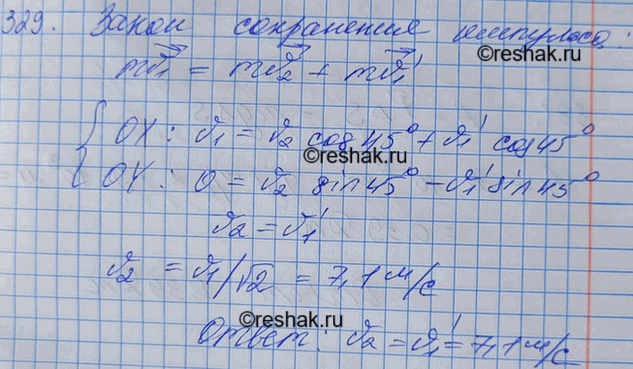 329. Закон сохранения импульса:
©reshak.ru
mv⃗₁ = mv⃗₂ + mv⃗₁'
©reshak.ru
{ OX: v₁ = v₂ cos 45° + v₁' cos 45°
©reshak.ru
OY: 0 = v₂ sin 45° - v₁' sin 45°
v₂ = v₁'
v₂ = v₁/√2 = 7,1 м/с
©reshak.ru
Ответ: v₂ = v₁' = 7,1 м/с